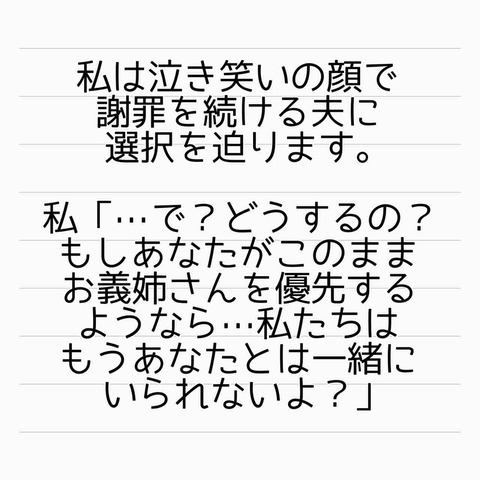 私は泣き笑いの顔で
謝罪を続ける夫に
選択を迫ります。
私「…で？どうするの？
もしあなたがこのまま
お義姉さんを優先する
ようなら…私たちは
もうあなたとは一緒に
いられないよ？」